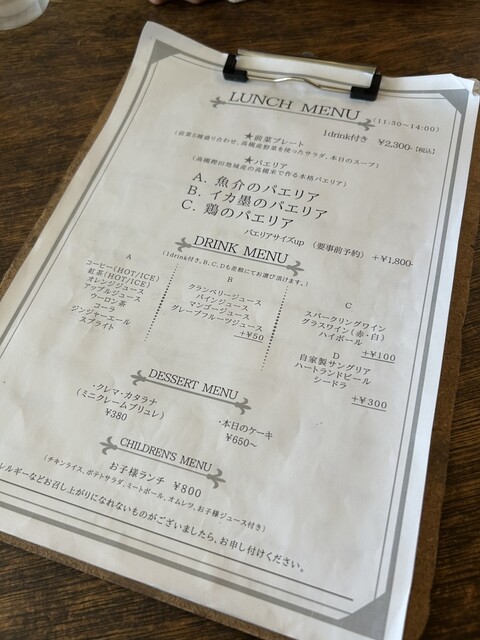 LUNCH MENU (11:30~14:00)
1drink付き ¥2,300-【税込】
★前菜プレート
(前菜5種盛り合わせ、高槻産野菜を使ったサラダ、本日のスープ)
★パエリア
(高槻樫田地域産の高槻米で作る本格パエリア)
A. 魚介のパエリア
B. イカ墨のパエリア
C. 鶏のパエリア
パエリアサイズup (要事前予約) +¥1,800-
DRINK MENU
(1drink付き、B、C、Dも差額にてお選び頂けます。)
A
コーヒー(HOT/ICE)
紅茶(HOT/ICE)
オレンジジュース
アップルジュース
ウーロン茶
コーラ
ジンジャーエール
スプライト
B
クランベリージュース
パインジュース
マンゴージュース
グレープフルーツジュース
+¥50
C
スパークリングワイン
グラスワイン(赤・白)
ハイボール
+¥100
D
自家製サングリア
ハートランドビール
シードラ
+¥300
DESSERT MENU
・クレマ・カタラナ
(ミニクレームブリュレ)
¥380
・本日のケーキ
¥650~
CHILDREN'S MENU
お子様ランチ ¥800
(チキンライス、ポテトサラダ、ミートボール、オムレツ、お子様ジュース付き)
レルギーなどお召し上がりになれないものがございましたら、お申し付けください。